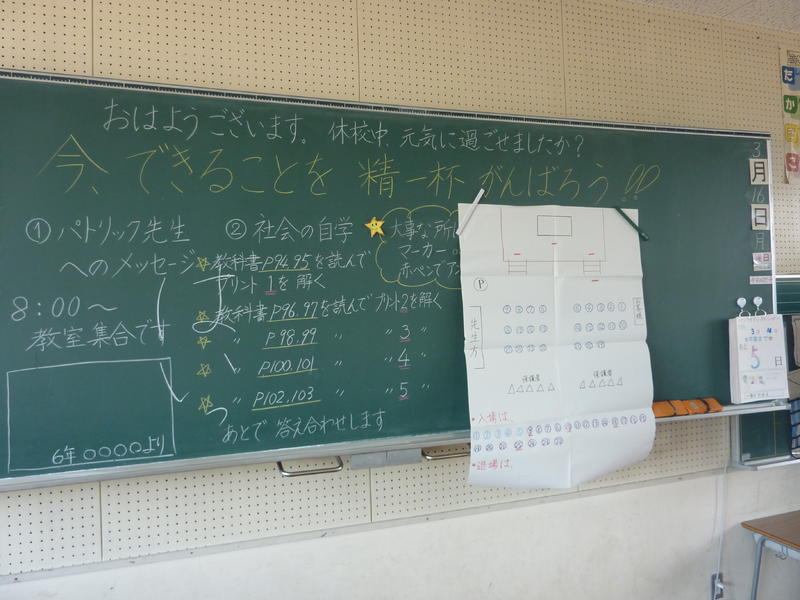 おはようございます。休校中、元気に過ごせましたか？
今、できることを 精一杯 がんばろう!!
① パトリック先生
へのメッセージ
8：00〜
教室集合です
6年 ○○○○より
② 社会の自学
大事な所
マーカー
赤ペンで
教科書P94.95を読んで
プリント 1を 解く
教科書P96.97を読んでプリント2を解く
〃 P98.99 〃 3 〃
〃 P100.101 〃 4 〃
〃 P102.103 〃 5 〃
あとで 答え合わせします
3
月
16
日
月
Ⓟ
先生方
保護者
保護者
・入場は、
・退場は、
5
日